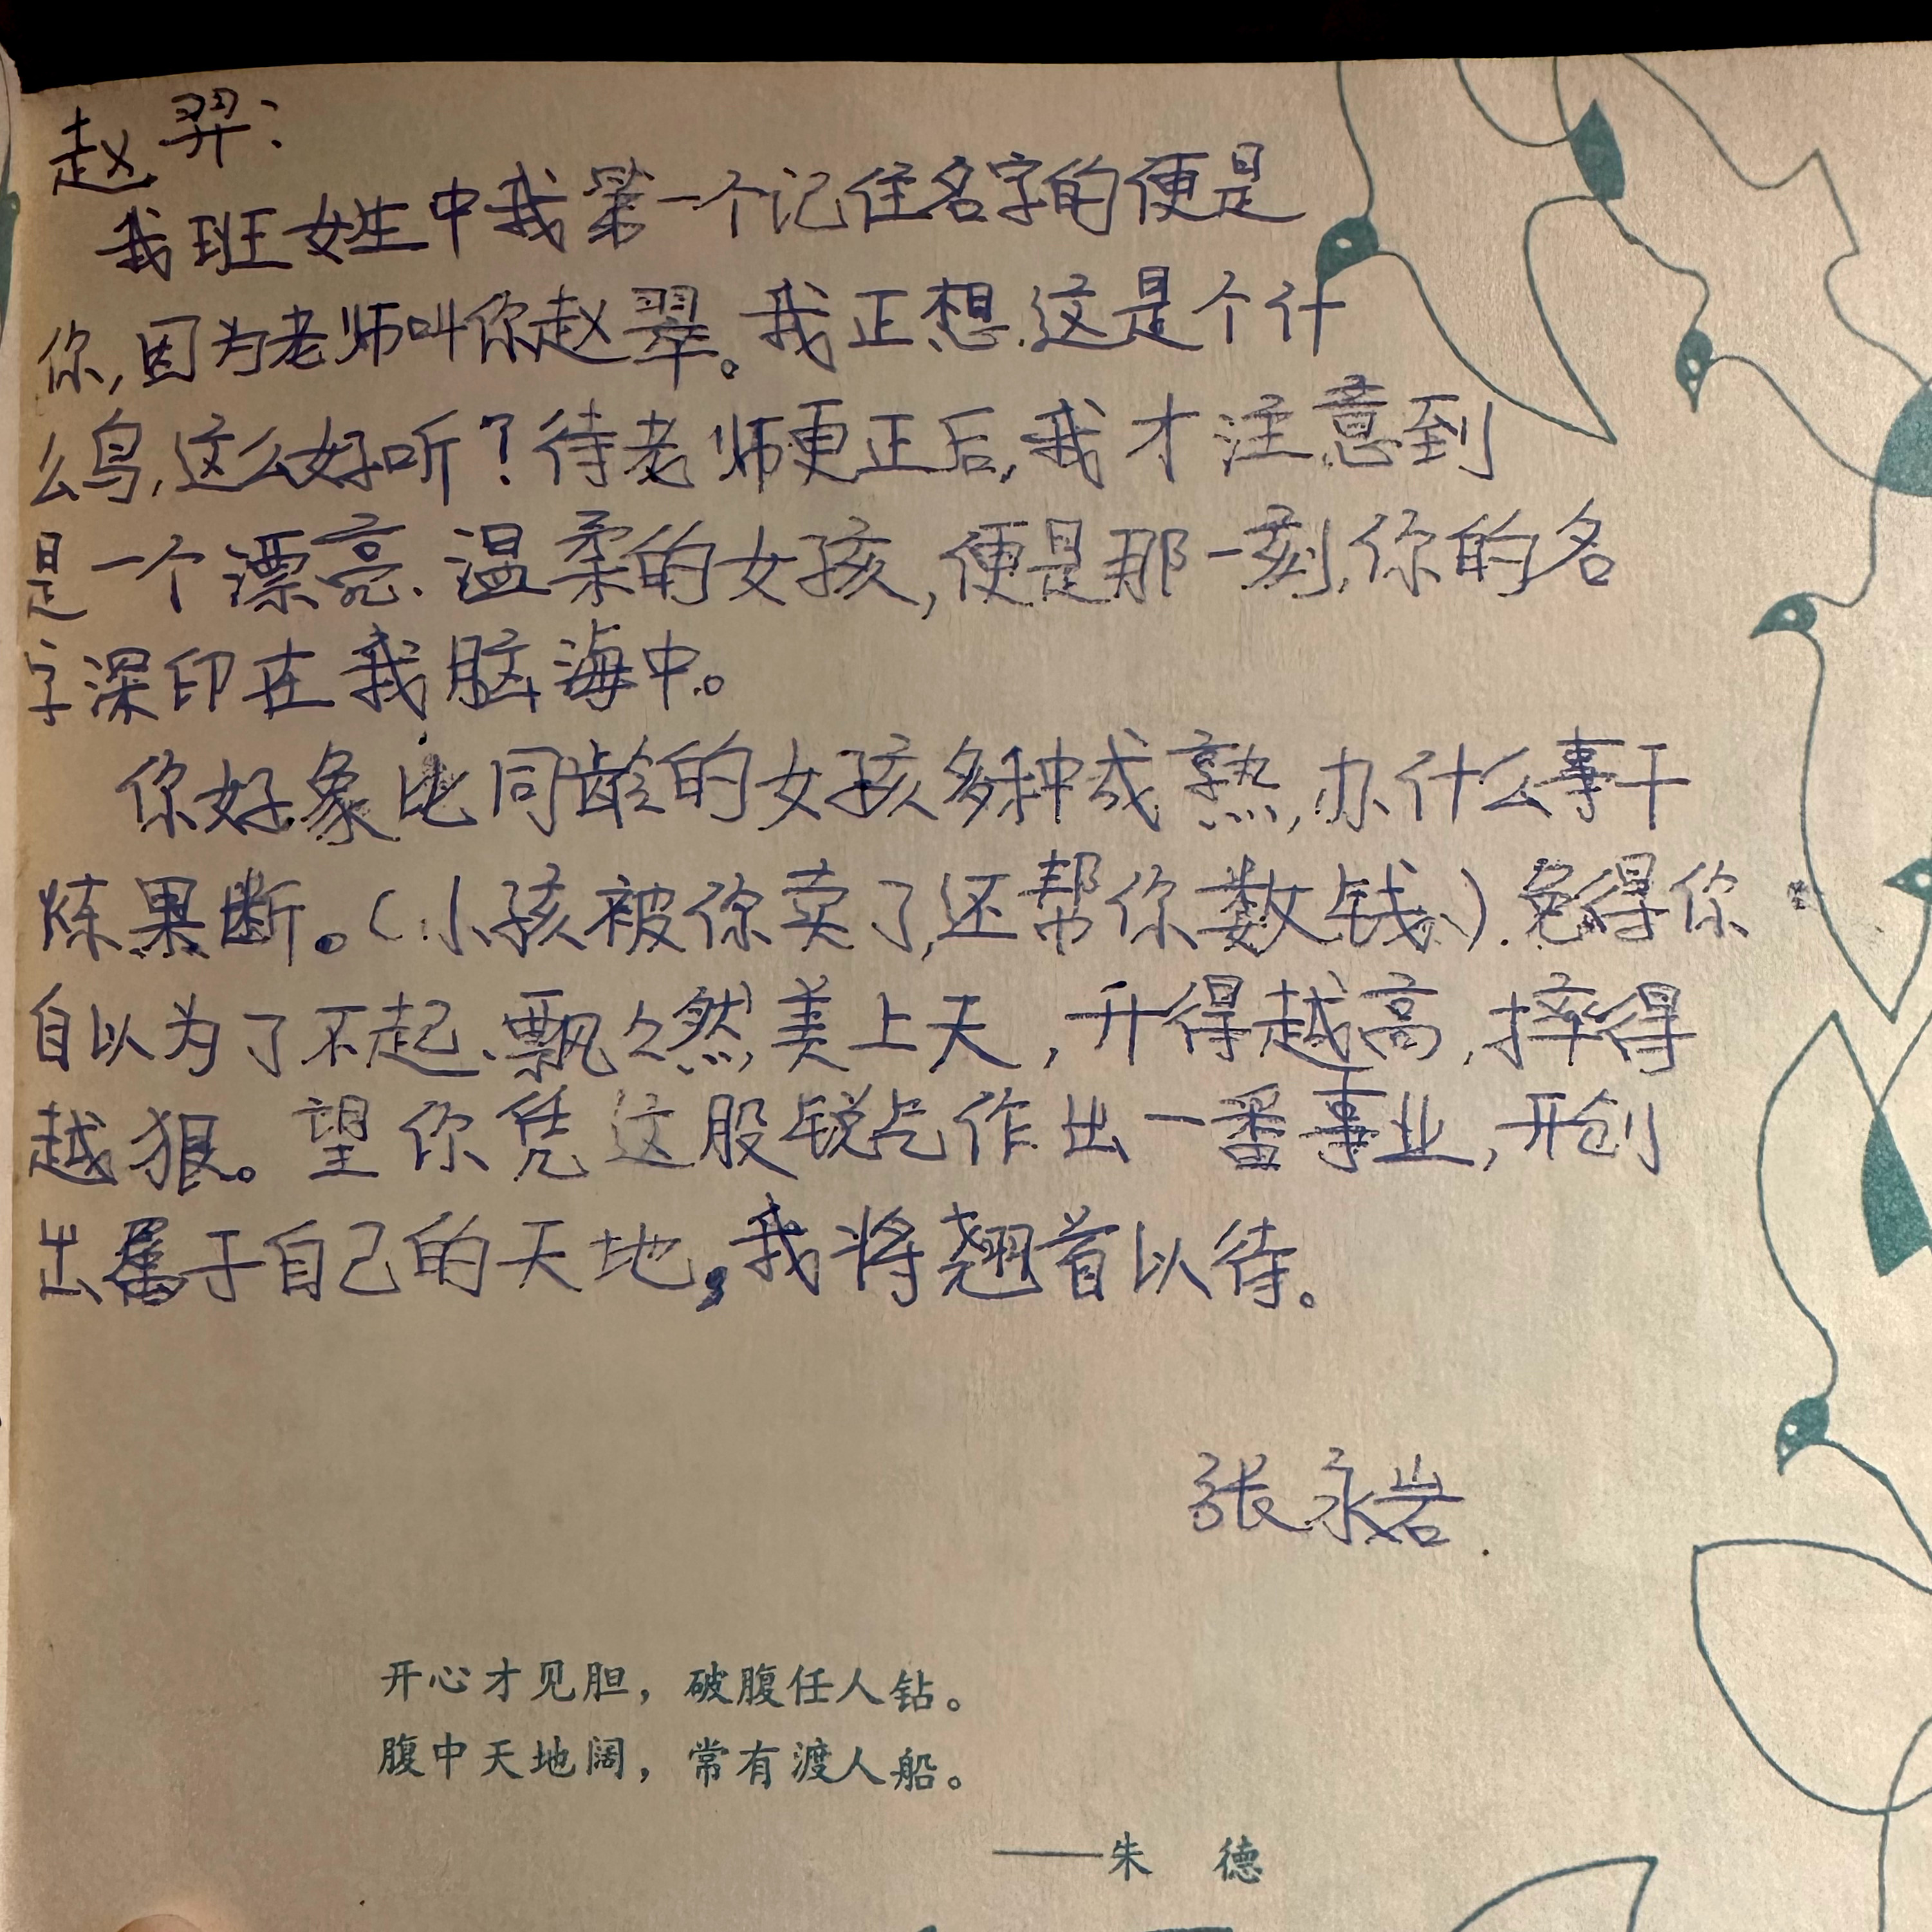 赵羿：
我班女姓中我第一个记住名字的便是
你,因为老师叫你赵翠。我正想.这是个什
么鸟,这么好听？待老师更正后,我才注意到
是一个漂亮、温柔的女孩,便是那一刻,你的名
字深印在我脑海中。
你好象比同龄的女孩多种成熟,办什么事干
炼果断。(小孩被你卖了,还帮你数钱、).免得你
自以为了不起、飘々然美上天,升得越高,摔得
越狠。望你凭这股锐气作出一番事业,开创
出属于自己的天地,我将翘首以待。
张永岩.
开心才见胆，破腹任人钻。
腹中天地阔，常有渡人船。
——朱 德